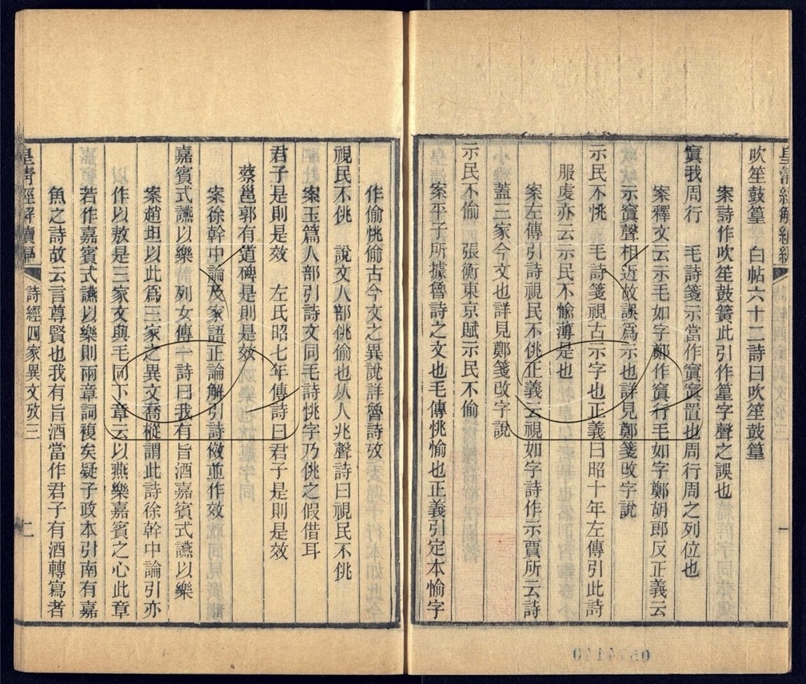 吹笙鼓篁　白帖六十二詩曰吹笙鼓篁
案詩作吹笙鼓簧此引作篁字聲之誤也
寘我周行　毛詩箋示當作寘寘置也周行周之列位也
案釋文云示毛如字鄭作寘行毛如字鄭胡郎反正義云
示寘聲相近故誤爲示也詳見鄭箋攺字說
示民不恌　毛詩箋視古示字也正義曰昭十年左傳引此詩
服虔亦云示民不愉薄是也
案左傳引詩視民不佻正義云視如字詩作示賈所云詩
蓋三家今文也詳見鄭箋攺字說
示民不偷　張衡東京賦示民不偷
案平子所據魯詩之文也毛傳恌愉也正義引定本愉字
作偷恌偷古今文之異說詳魯詩攷
視民不佻　說文人部佻偷也从人兆聲詩曰視民不佻
案玉篇人部引詩文同毛詩恌字乃佻之假借耳
君子是則是效　左氏昭七年傳詩曰君子是則是效
蔡邕郭有道碑是則是效
案徐幹中論及家語正論解引詩傚並作效
嘉賓式讌以樂　列女傳一詩曰我有旨酒嘉賓式讌以樂
案趙坦以此爲三家之異文喬樅謂此詩徐幹中論引亦
作以敖是三家文與毛同下章云以燕樂嘉賓之心此章
若作嘉賓式讌以樂則兩章詞複矣疑子政本引南有嘉
魚之詩故云言尊賢也我有旨酒當作君子有酒轉寫者
皇清經解續編　詩經四家異文攷三　二